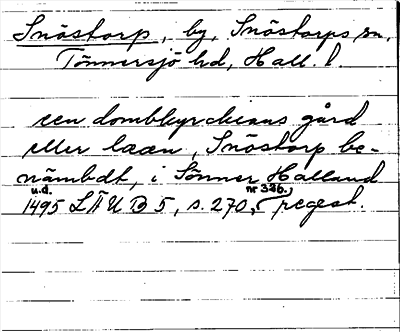 Snöstorp, by, Snöstorps sn,
Tönnersjö hd, Hall. l.
een dombkyrckians gård
eller laan, Snöstorp be-
nämbdt, i Sönner Halland
u.d. nr 326.
1495 LÄUB 5, s. 270, regest.